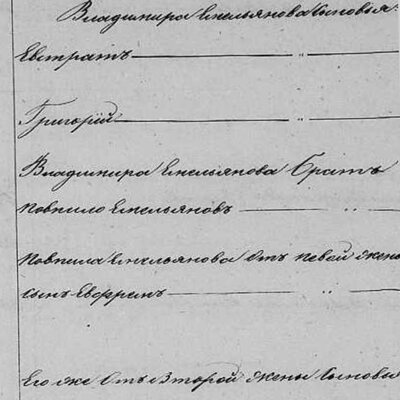 Владимира Емельянова Сыновья:
Евтратъ "
Григорій "
Владимира Емельянова Братъ
Повнило Емельяновъ "
Повнила Емельянова Отъ певой жены
сынъ Ефремъ "
Его же Отъ Второй жены Сыновья